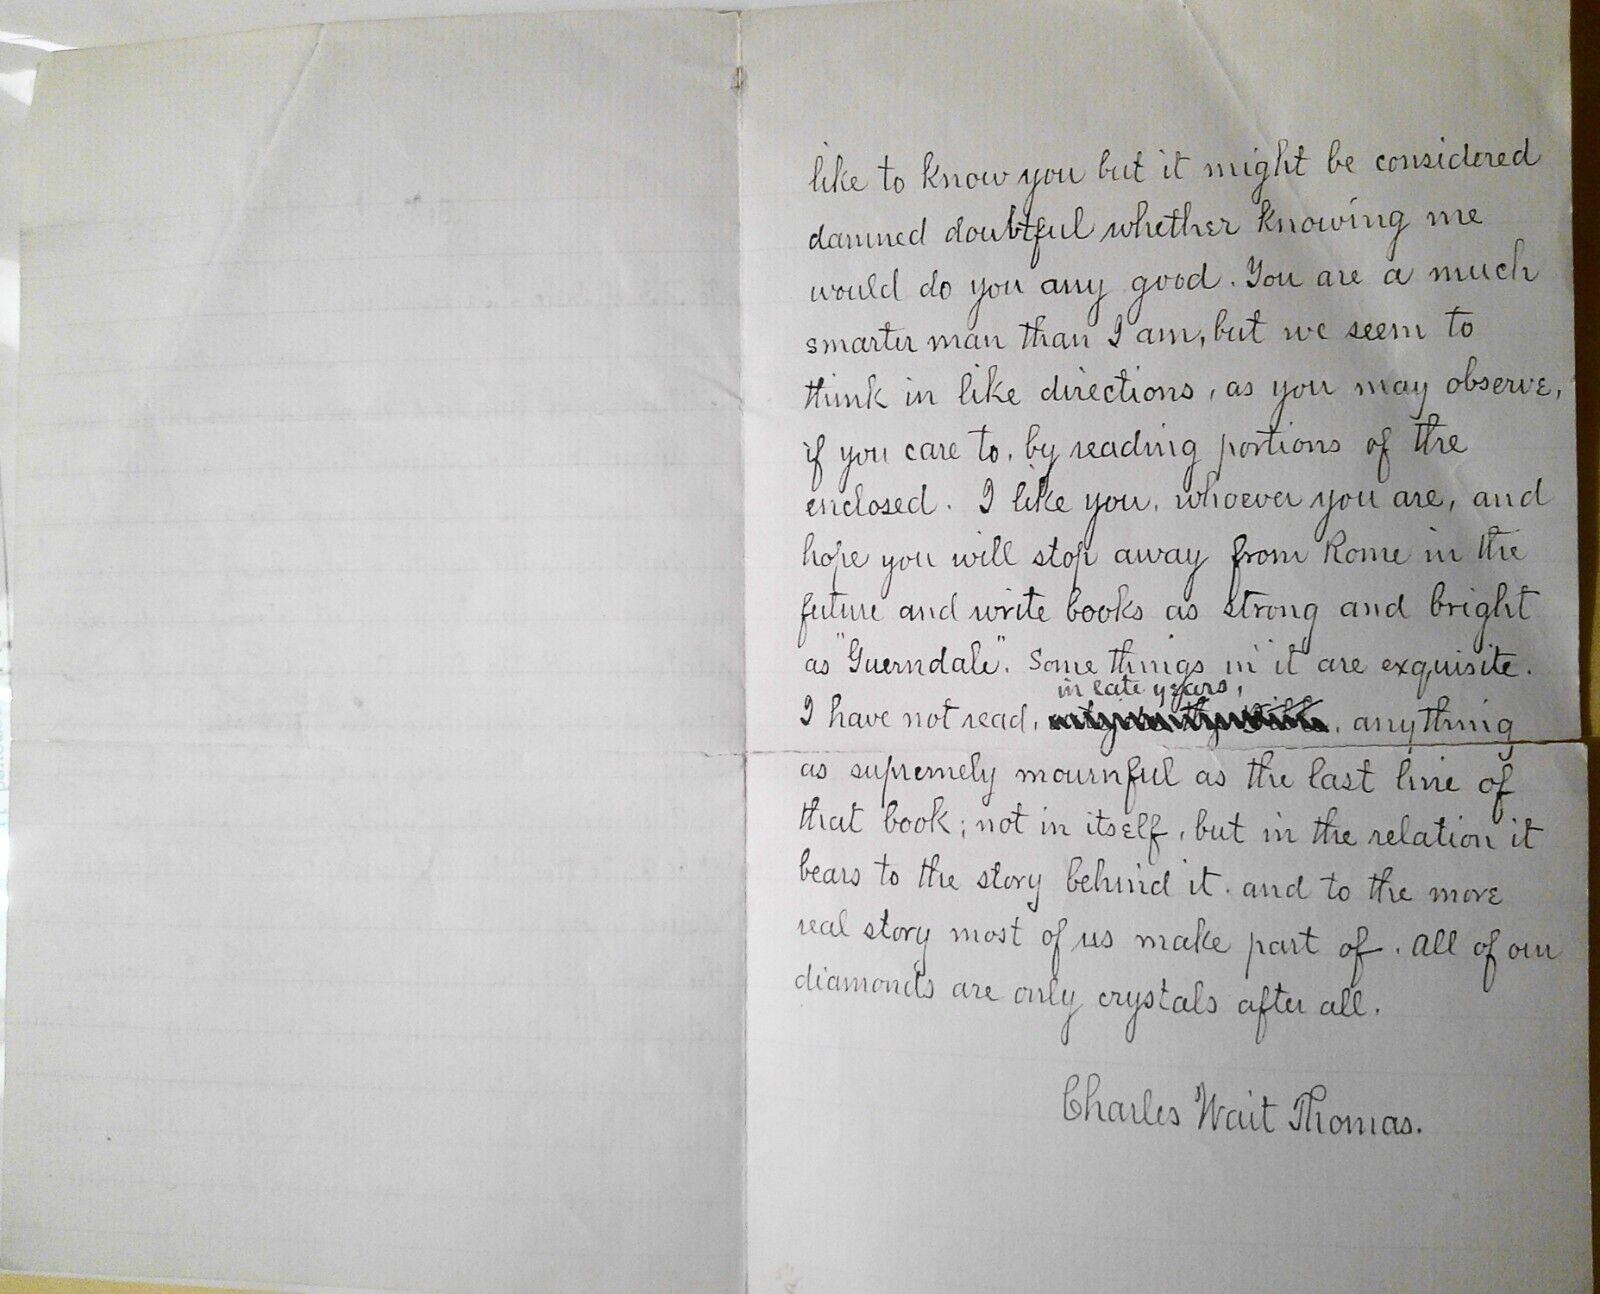 like to know you but it might be considered
damned doubtful whether knowing me
would do you any good. You are a much
smarter man than I am, but we seem to
think in like directions, as you may observe,
if you care to, by reading portions of the
enclosed. I like you, whoever you are, and
hope you will stop away from Rome in the
future and write books as strong and bright
as "Guerndale". Some things in it are exquisite.
in late years,
I have not read, , anything
as supremely mournful as the last line of
that book; not in itself, but in the relation it
bears to the story behind it and to the more
real story most of us make part of. All of our
diamonds are only crystals after all.
Charles Wait Thomas.